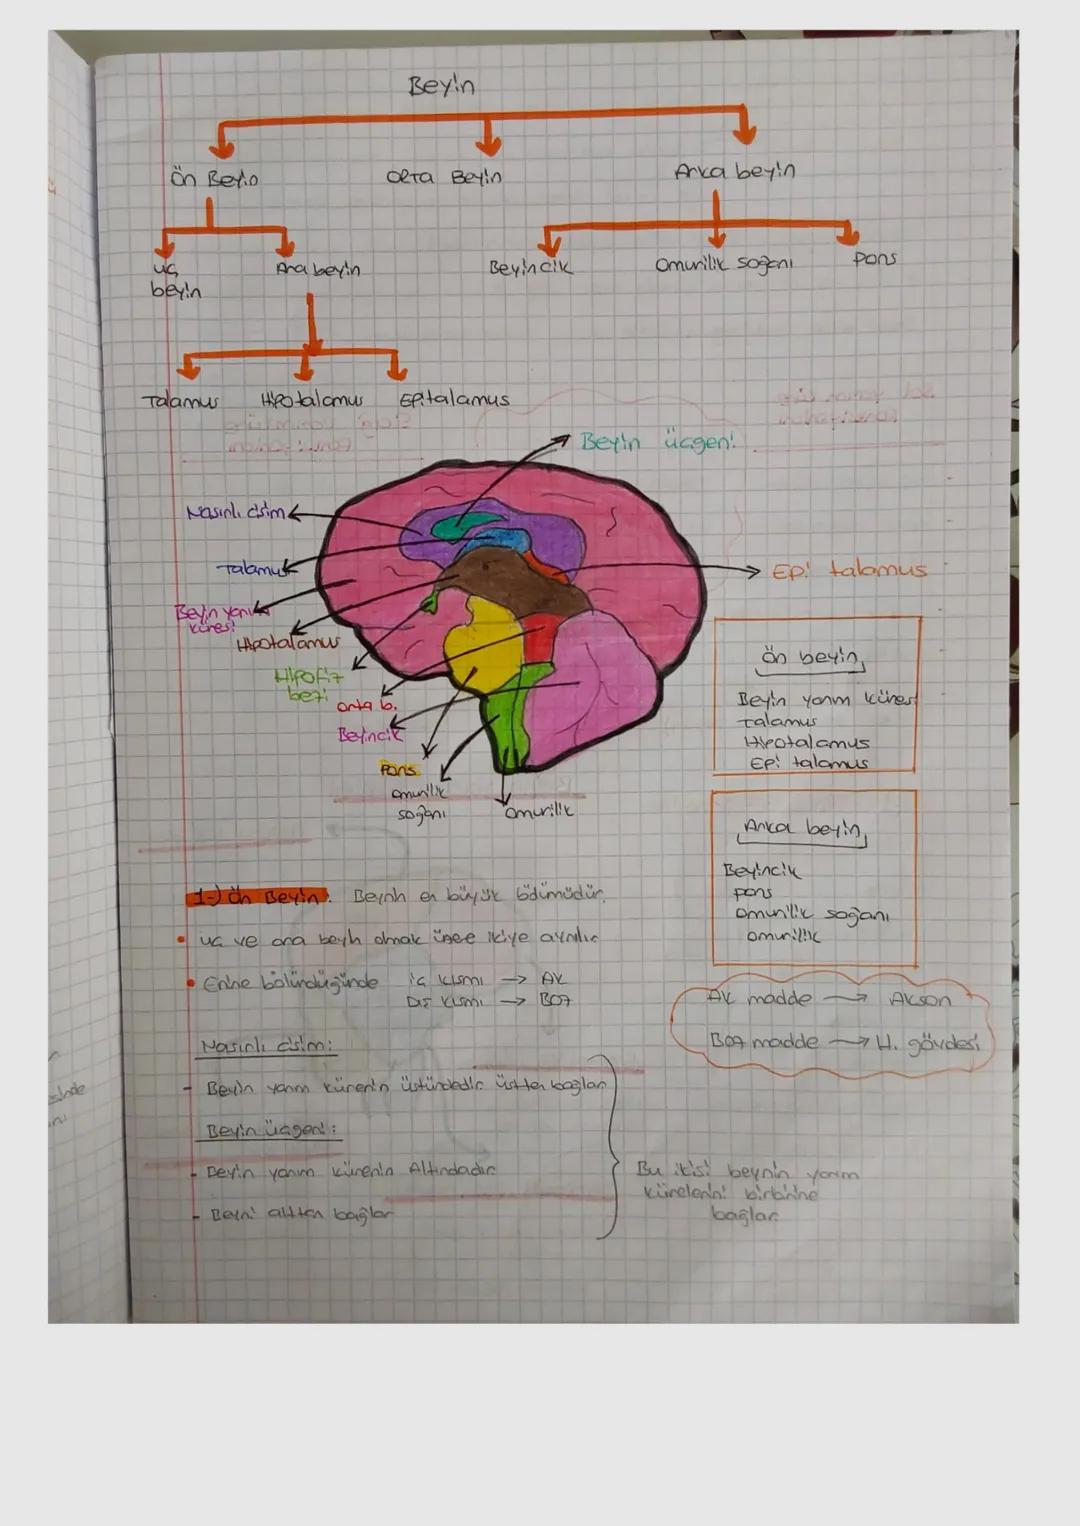 Beyin
Ön Beyin
Orta Beyin
Arka beyin
uç
beyin
Ara beyin
Beyincik
Omurilik soğanı
pons
Talamus
Hipotalamus
Epitalamus
Beyin üçgeni
Nasırlı cisim
Talamus
Epi talamus
Beyin yarım
küresi
Hipotalamus
Hipofiz
bezi
orta b.
Beyincik
Pons
omurilik
soğanı
Omurilik
Ön beyin
Beyin yarım küresi
Talamus
Hipotalamus
Epi talamus
Arka beyin
Beyincik
pons
omurilik soğanı
omurilik
1-) Ön Beyin: Beynin en büyük bölümüdür.
• uç ve ara beyin olmak üzere ikiye ayrılır
• Enine bölündüğünde iç kısmı → Ak
Dış kısmı → Boz
Ak madde → Akson
Boz madde → H. gövdesi
Nasırlı cisim:
- Beyin yarım kürenin üstündedir üstten bağlar
Beyin üçgeni:
- Beyin yarım kürenin Altındadır
- Beyni alttan bağlar
Bu ikisi beynin yarım
kürelerini birbirine
bağlar